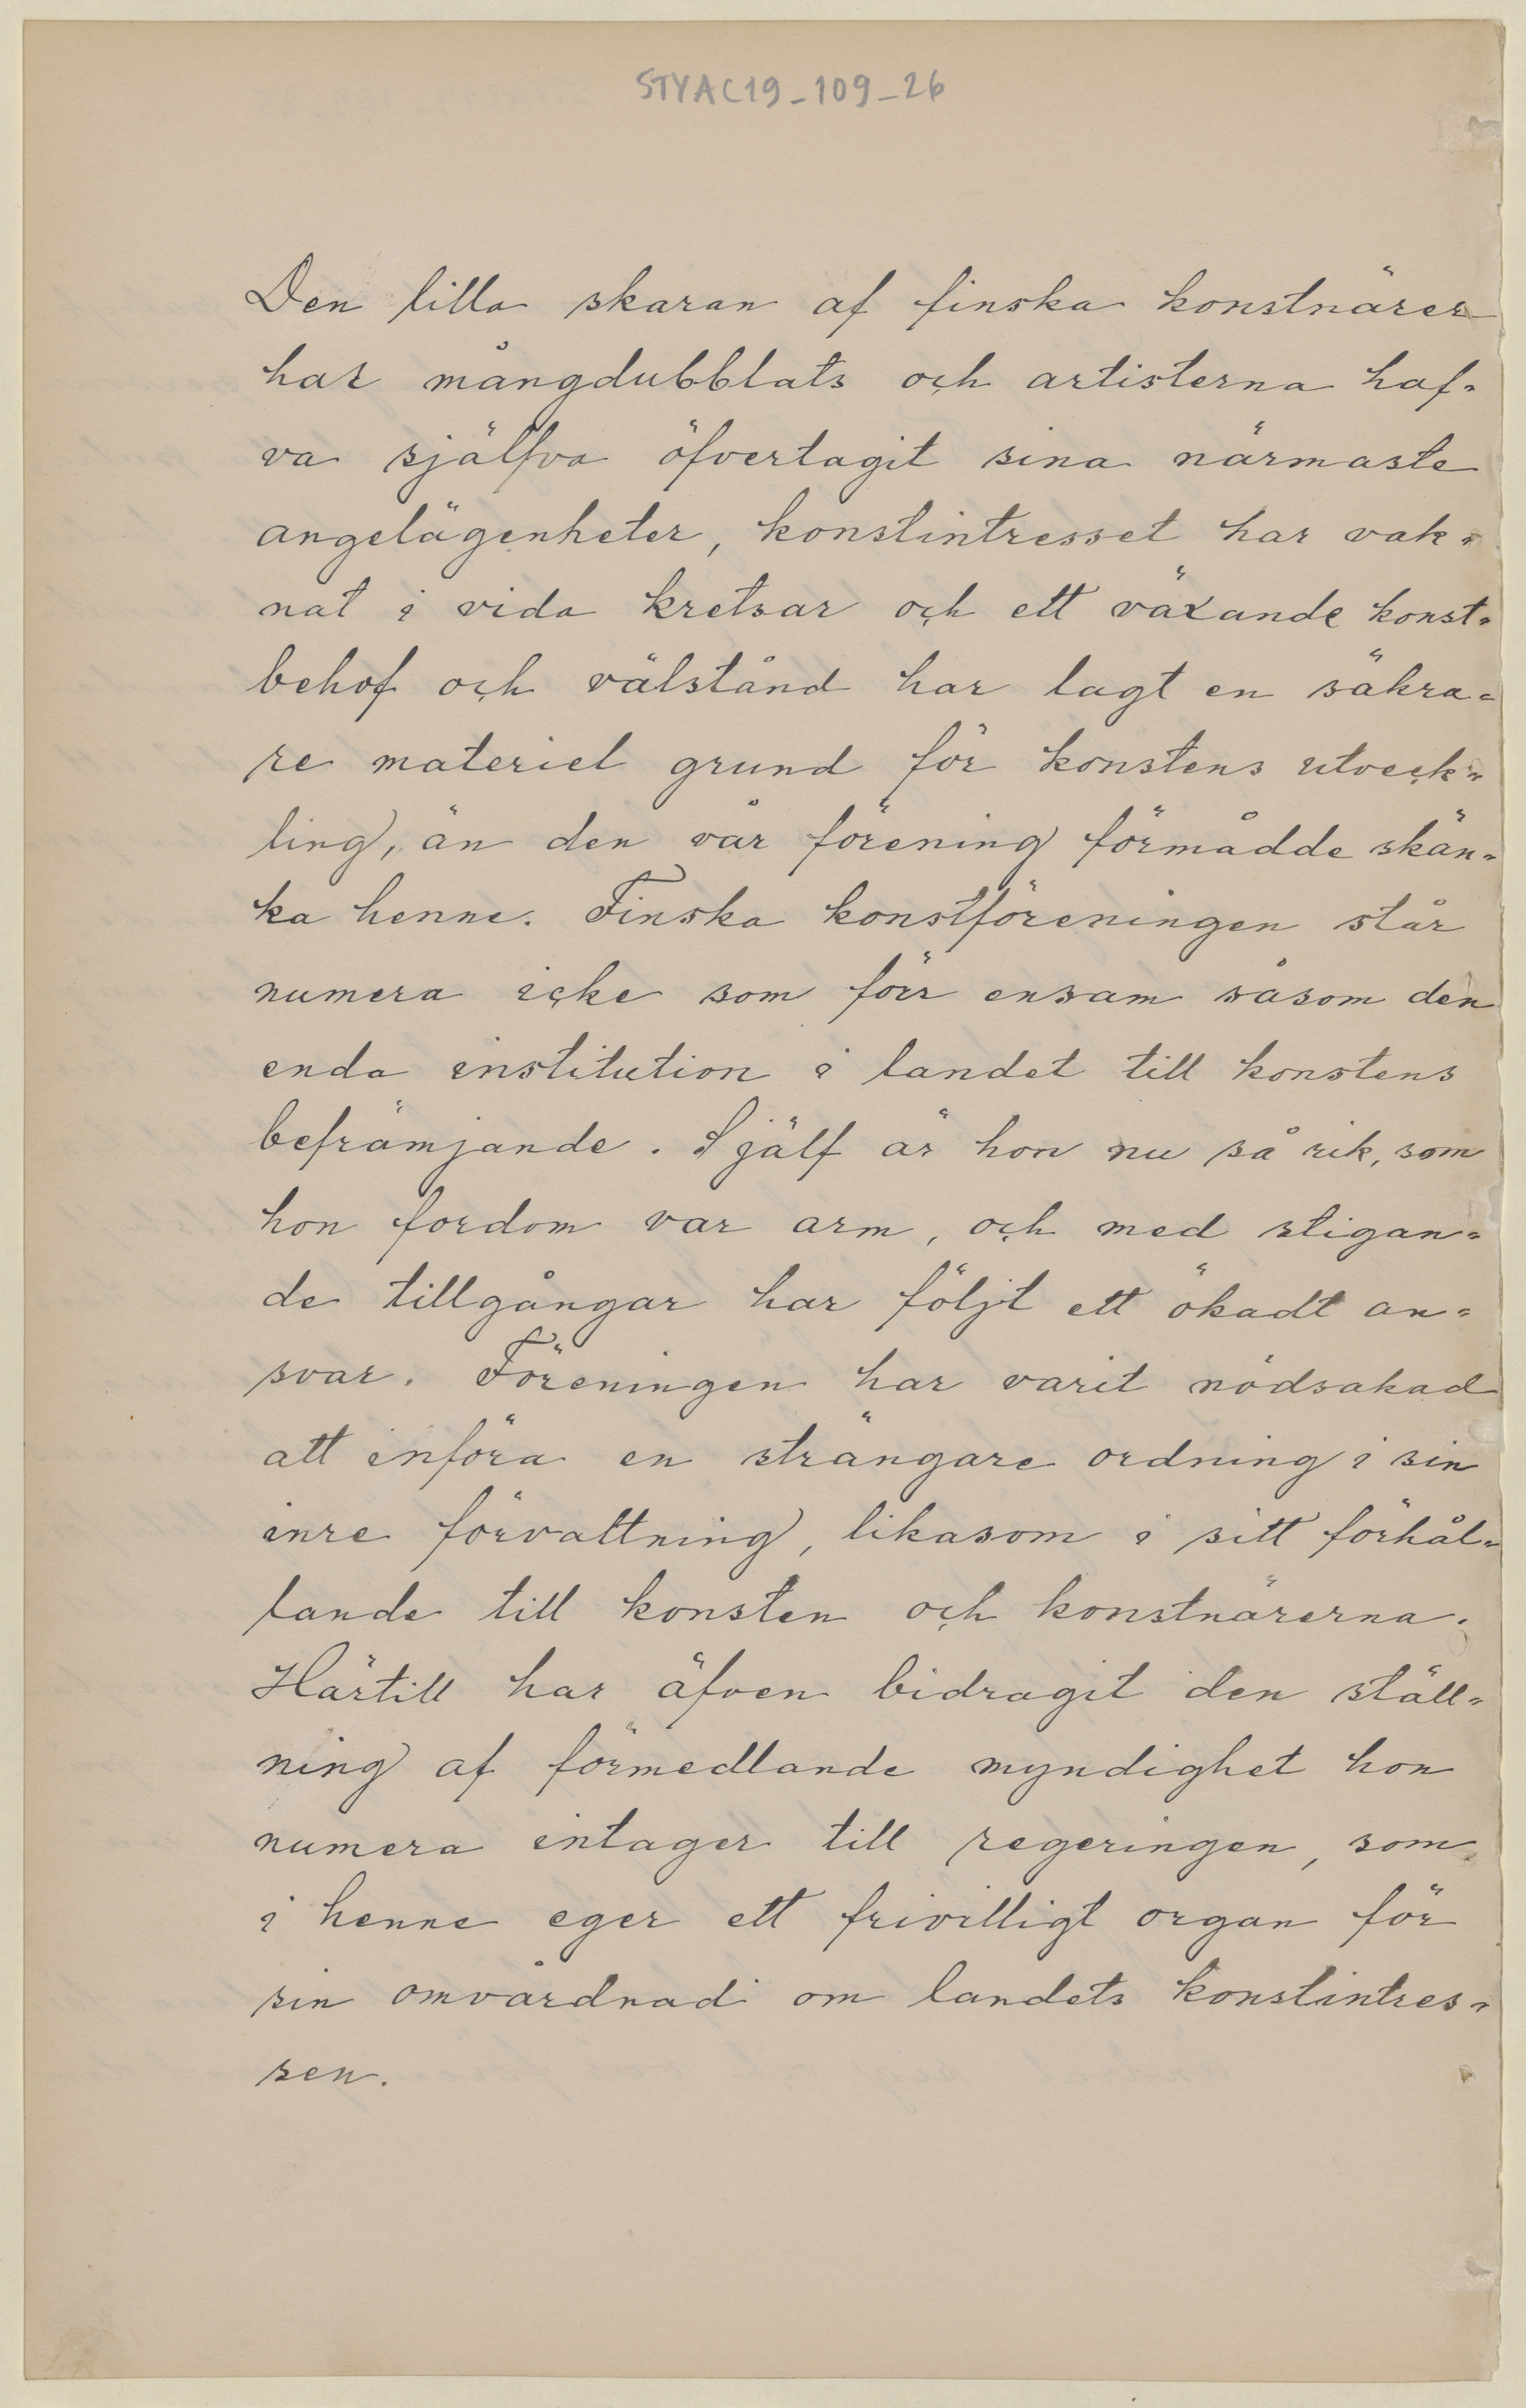 STYAC19_109_26
Den lilla skaran af finska konstnärer
har mångdubblats och artisterna haf-
va själfva öfvertagit sina närmaste
angelägenheter, konstintresset har vak-
nat i vida kretsar och ett växande konst-
behof och välstånd har lagt en säkra-
re materiel grund för konstens utveck-
ling, än den vår förening förmådde skän-
ka henne. Finska konstföreningen står
numera icke som förr ensam såsom den
enda institution i landet till konstens
befrämjande. Själf är hon nu så rik, som
hon fordom var arm, och med stigan-
de tillgångar har följt ett ökadt an-
svar. Föreningen har varit nödsakad
att införa en strängare ordning i sin
inre förvaltning, likasom i sitt förhål-
lande till konsten och konstnärerna.
Härtill har äfven bidragit den ställ-
ning af förmedlande myndighet hon
numera intager till regeringen, som
i henne eger ett frivilligt organ för
sin omvårdnad om landets konstintres-
sen.